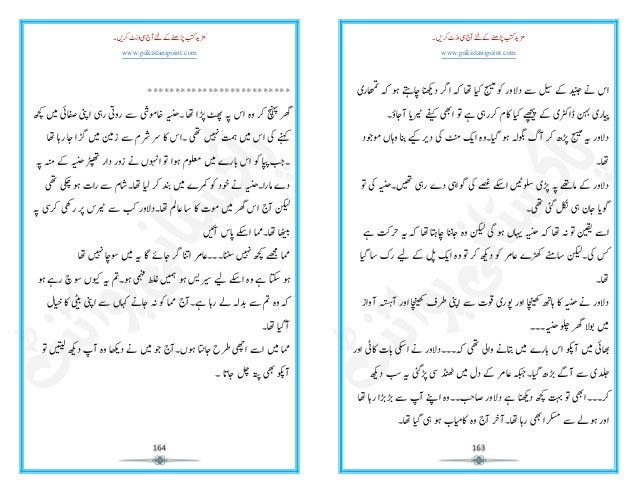 مزید کتب پڑھنے کے لئے آج ہی وزٹ کریں۔
www.pakistanipoint.com
اس نے جنید کے سیل سے دلاور کو میسج کیا تھا کہ اگر دیکھنا چاہتے ہو وہ کہ تمھاری
پیاری بہن ڈاکٹری کے پیچھے کیا کام کر رہی ہے تو ابھی کیفے ٹیریا آجاؤ۔
دلاور یہ میسج پڑھ کر آگ بگولہ ہو گیا۔ وہ ایک منٹ کی دیر کیے بنا وہاں موجود
تھا۔
دلاور کے ماتھے پہ پڑی سلوٹیں اسکے غصے کی گواہی دے رہی تھیں۔ حنیہ کی تو
گویا جان ہی نکل گئی تھی۔
اسے یقین تو نہ تھا کہ حنیہ یہاں ہو گی لیکن وہ جاننا چاہتا تھا کہ یہ حرکت ہے
کس کی۔ لیکن سامنے کھڑے عامر کو دیکھ کر تو وہ ایک پل کے لیے رک سا گیا
تھا۔
دلاور نے حنیہ کا ہاتھ کھینچا اور پوری قوت سے اپنی طرف کھینچا اور آہستہ آواز
میں بولا گھر چلو حنیہ۔۔۔
بھائی میں آپکو اس بارے میں بتانے والی تھی کہ۔۔۔ دلاور نے اسکی بات کاٹی اور
جلدی سے آگے بڑھ گیا۔ جبکہ عامر کے دل میں ٹھنڈ سی پڑ گئی یہ سب دیکھ
کر۔۔۔ ابھی تو بہت کچھ دیکھنا ہے دلاور صاحب۔۔ وہ اپنے آپ سے بڑبڑا رہا تھا
اور ہولے سے مسکرا بھی رہا تھا۔ آخر آج وہ کامیاب ہو ہی گیا تھا۔
163
مزید کتب پڑھنے کے لئے آج ہی وزٹ کریں۔
www.pakistanipoint.com
**************************
گھر پہنچ کر وہ اس پہ پھٹ پڑا تھا۔ حنیہ خاموشی سے روتی رہی اپنی صفائی میں کچھ
کہنے کی اس میں ہمت نہیں تھی۔ اس کا سر شرم سے زمین میں گڑا جا رہا تھا
۔ جب پاپا کو اس بارے میں معلوم ہوا تو انہوں نے زور دار تھپڑ حنیہ کے منہ پہ
دے مارا۔ حنیہ نے خود کو کمرے میں بند کر لیا تھا۔ شام سے رات ہو چکی تھی
لیکن آج اس گھر میں موت کا سا عالم تھا۔ دلاور کب سے ٹیرس پر رکھی کرسی پہ
بیٹھا تھا۔ مما اسکے پاس آئیں
مما مجھے کچھ نہیں سننا۔۔۔ عامر اتنا گر جائے گا یہ میں سوچا نہیں تھا
ہو سکتا ہے وہ اسکے لیے سیریس ہو ہمیں غلط فہمی ہو۔ تم یہ کیوں سوچ رہے ہو
کہ وہ تم سے بدلہ لے رہا ہے۔ آج مما کو نہ جانے کہاں سے اپنی بیٹی کا خیال
آگیا تھا۔
مما میں اسے اچھی طرح جانتا ہوں۔ آج میں جو نے دیکھا وہ آپ دیکھ لیتیں تو
آپکو بھی پتہ چل جاتا ۔
164